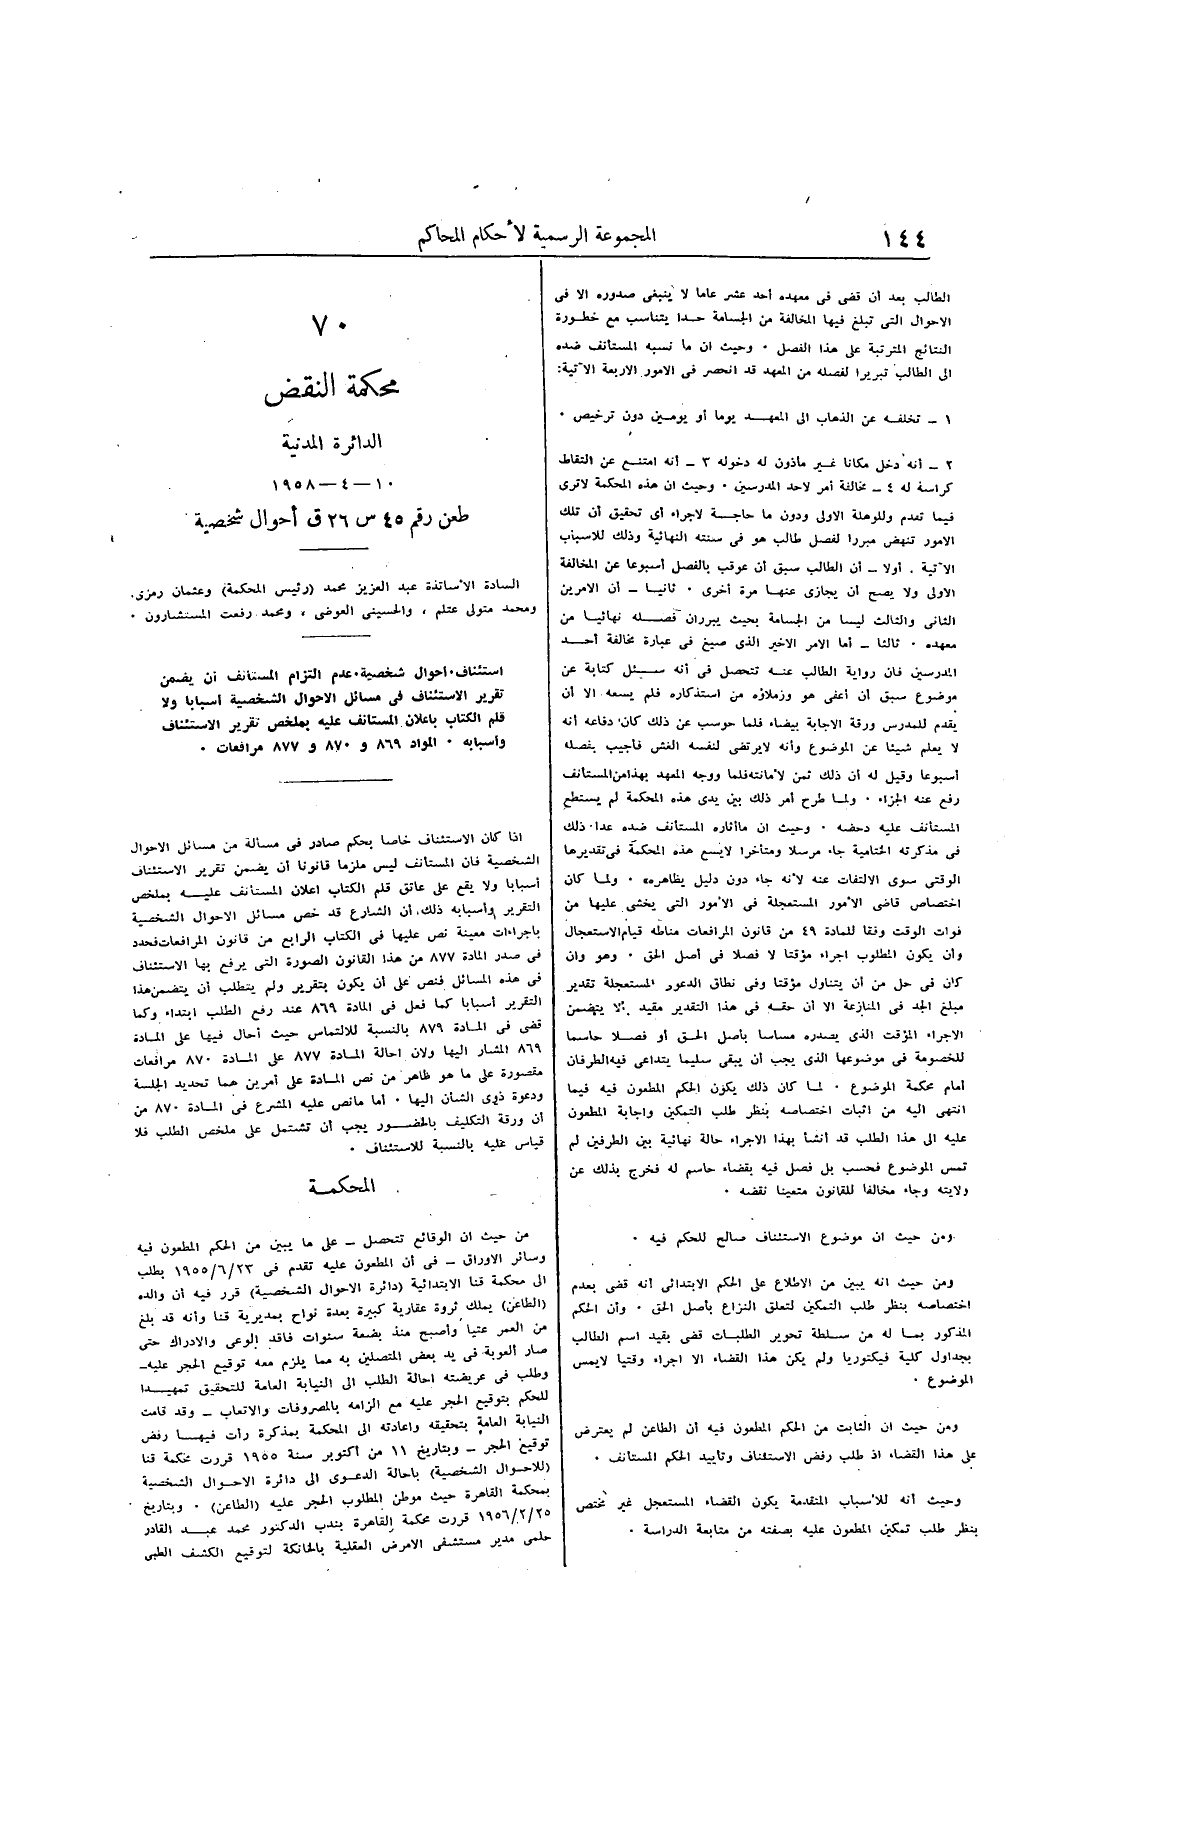 ١٤٤
المجموعة الرسمية لأحكام المحاكم
الطالب بعد أن قضى فى معهده أحد عشر عاما لا ينبغى صدوره الا فى
الاحوال التى تبلغ فيها المخالفة من الجسامة حدا يتناسب مع خطورة
النتائج المترتبة على هذا الفصل ٠ وحيث ان ما نسبه المستأنف ضده
الى الطالب تبريرا لفصله من المعهد قد انحصر فى الامور الاربعة الآتية:
١ ـ تخلفه عن الذهاب الى المعهد يوما أو يومين دون ترخيص ٠
٢ ـ أنه دخل مكانا غير مأذون له دخوله ٣ ـ أنه امتنع عن التقاط
كراسة له ٤ ـ مخالفة أمر لاحد المدرسين ٠ وحيث ان هذه المحكمة لاترى
فيما تقدم وللوهلة الاولى ودون ما حاجة لاجراء أى تحقيق أن تلك
الامور تنهض مبررا لفصل طالب هو فى سنته النهائية وذلك للاسباب
الآتية . أولا ـ أن الطالب سبق أن عوقب بالفصل أسبوعا عن المخالفة
الاولى ولا يصح أن يجازى عنها مرة أخرى ٠ ثانيا ـ أن الامرين
الثانى والثالث ليسا من الجسامة بحيث يبرران فصله نهائيا من
معهده ٠ ثالثا ـ أما الامر الاخير الذى صيغ فى عبارة مخالفة أحد
المدرسين فان رواية الطالب عنه تتحصل فى أنه سئل كتابة عن
موضوع سبق أن أعفى هو وزملاؤه من استذكاره فلم يسعه الا أن
يقدم للمدرس ورقة الاجابة بيضاء فلما حوسب عن ذلك كان دفاعه أنه
لا يعلم شيئا عن الموضوع وأنه لايرتضى لنفسه الغش فأجيب بفصله
أسبوعا وقيل له أن ذلك ثمن لأمانته فلما ووجه المعهد بهذا من المستأنف
رفع عنه الجزاء ٠ ولما طرح أمر ذلك بين يدى هذه المحكمة لم يستطع
المستأنف عليه دحضه ٠ وحيث ان ماأثاره المستأنف ضده عدا ذلك
فى مذكرته الختامية جاء مرسلا ومتأخرا لايسع هذه المحكمة فى تقديرها
الوقتى سوى الالتفات عنه لأنه جاء دون دليل يظاهره» ٠ ولما كان
اختصاص قاضى الأمور المستعجلة فى الأمور التى يخشى عليها من
فوات الوقت وفقا للمادة ٤٩ من قانون المرافعات مناطه قيام الاستعجال
وأن يكون المطلوب اجراء مؤقتا لا فصلا فى أصل الحق ٠ وهو وان
كان فى حل من أن يتناول مؤقتا وفى نطاق الدعوى المستعجلة تقدير
مبلغ الجد فى المنازعة الا أن حقه فى هذا التقدير مقيد بألا يتضمن
الاجراء المؤقت الذى يصدره مساسا بأصل الحق أو فصلا حاسما
للخصومة فى موضوعها الذى يجب أن يبقى سليما يتداعى فيه الطرفان
أمام محكمة الموضوع ٠ لما كان ذلك يكون الحكم المطعون فيه فيما
انتهى اليه من اثبات اختصاصه بنظر طلب التمكين واجابة المطعون
عليه الى هذا الطلب قد أنشأ بهذا الاجراء حالة نهائية بين الطرفين لم
تمس الموضوع فحسب بل فصل فيه بقضاء حاسم له فخرج بذلك عن
ولايته وجاء مخالفا للقانون متعينا نقضه ٠
ومن حيث ان موضوع الاستئناف صالح للحكم فيه ٠
ومن حيث انه يبين من الاطلاع على الحكم الابتدائى أنه قضى بعدم
اختصاصه بنظر طلب التمكين لتعلق النزاع بأصل الحق ٠ وأن الحكم
المذكور بما له من سلطة تحوير الطلبات قضى بقيد اسم الطالب
بجداول كلية فيكتوريا ولم يكن هذا القضاء الا اجراء وقتيا لايمس
الموضوع ٠
ومن حيث ان الثابت من الحكم المطعون فيه أن الطاعن لم يعترض
على هذا القضاء اذ طلب رفض الاستئناف وتأييد الحكم المستأنف ٠
وحيث أنه للأسباب المتقدمة يكون القضاء المستعجل غير مختص
بنظر طلب تمكين المطعون عليه بصفته من متابعة الدراسة ٠
٧٠
محكمة النقض
الدائرة المدنية
١٠ـ٤ـ١٩٥٨
طعن رقم ٤٥ س ٢٦ ق أحوال شخصية
السادة الأساتذة عبد العزيز محمد (رئيس المحكمة) وعثمان رمزى،
ومحمد متولى عتلم ، والحسينى العوضى ، ومحمد رفعت المستشارون ٠
استئناف٠أحوال شخصية٠عدم التزام المستأنف أن يضمن
تقرير الاستئناف فى مسائل الاحوال الشخصية أسبابا ولا
قلم الكتاب باعلان المستأنف عليه بملخص تقرير الاستئناف
وأسبابه ٠ المواد ٨٦٩ و ٨٧٠ و ٨٧٧ مرافعات ٠
اذا كان الاستئناف خاصا بحكم صادر فى مسألة من مسائل الاحوال
الشخصية فان المستأنف ليس ملزما قانونا أن يضمن تقرير الاستئناف
أسبابا ولا يقع على عاتق قلم الكتاب اعلان المستأنف عليه بملخص
التقرير وأسبابه ذلك، أن الشارع قد خص مسائل الاحوال الشخصية
باجراءات معينة نص عليها فى الكتاب الرابع من قانون المرافعات فحدد
فى صدر المادة ٨٧٧ من هذا القانون الصورة التى يرفع بها الاستئناف
فى هذه المسائل فنص على أن يكون بتقرير ولم يتطلب أن يتضمن هذا
التقرير أسبابا كما فعل فى المادة ٨٦٩ عند رفع الطلب ابتداء وكما
قضى فى المادة ٨٧٩ بالنسبة للالتماس حيث أحال فيها على المادة
٨٦٩ المشار اليها ولان احالة المادة ٨٧٧ على المادة ٨٧٠ مرافعات
مقصورة على ما هو ظاهر من نص المادة على أمرين هما تحديد الجلسة
ودعوة ذوى الشأن اليها ٠ أما مانص عليه المشرع فى المادة ٨٧٠ من
أن ورقة التكليف بالحضور يجب أن تشتمل على ملخص الطلب فلا
قياس عليه بالنسبة للاستئناف ٠
المحكمة
من حيث ان الوقائع تتحصل ـ على ما يبين من الحكم المطعون فيه
وسائر الاوراق ـ فى أن المطعون عليه تقدم فى ١٩٥٥/٦/٢٣ بطلب
الى محكمة قنا الابتدائية (دائرة الاحوال الشخصية) قرر فيه أن والده
(الطاعن) يملك ثروة عقارية كبيرة بعدة نواح بمديرية قنا وأنه قد بلغ
من العمر عتيا وأصبح منذ بضعة سنوات فاقد الوعى والادراك حتى
صار ألعوبة فى يد بعض المتصلين به مما يلزم معه توقيع الحجر عليه ـ
وطلب فى عريضته احالة الطلب الى النيابة العامة للتحقيق تمهيدا
للحكم بتوقيع الحجر عليه مع الزامه بالمصروفات والاتعاب ـ وقد قامت
النيابة العامة بتحقيقه واعادته الى المحكمة بمذكرة رأت فيها رفض
توقيع الحجر ـ وبتاريخ ١١ من أكتوبر سنة ١٩٥٥ قررت محكمة قنا
(للاحوال الشخصية) باحالة الدعوى الى دائرة الاحوال الشخصية
بمحكمة القاهرة حيث موطن المطلوب الحجر عليه (الطاعن) ٠ وبتاريخ
١٩٥٦/٢/٢٥ قررت محكمة القاهرة بندب الدكتور محمد عبد القادر
حلمى مدير مستشفى الامراض العقلية بالخانكة لتوقيع الكشف الطبى